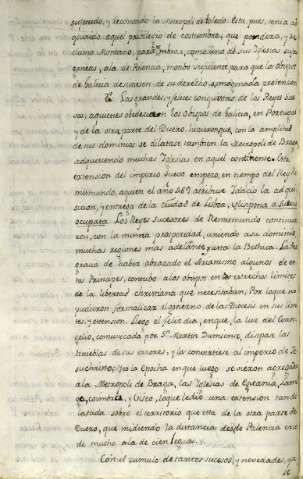 y reconociendo la Metropoli de Toledo. Esta, pues, tenia ad
quirido aquel privilegio de costumbre, que pondera, y re
clama Montano, para Ambra, como una de sus Iglesias sufra
ganeas, a la de Palencia, motivo suficiente para que los Obispos
de Galicia desistiesen de su derecho, a
Las grandes, y felices conquistas de los Reyes Sue
vos, a quienes obedecian los Obispos de Galicia, en Portugal
y de la otra parte del Duero, hicieron que, con la amplitud
de sus dominios se dilatase tambien la Metropoli de Braga
adquiriendo muchas Iglesias en aquel continente. Esta
extension del imperio Suevo empezo, en tiempo del Rey Re
mismundo, a quien el año 467 atribuye Idacio la adqui
sicion, y entrega de la ciudad de Lisboa, Ulispona a Suevis
occupata. Los Reyes Sucesores de Remismundo continua
ron, con la misma prosperidad, uniendo a su dominio,
muchas regiones mas adelante, junto la Bethica. La des
gracia de haber abrazado el Arrianismo algunos de es
tos Principes, contubo a los Obispos en los estrechos limites
de la libertad christiana que necesitaban, Por lo que no
pudieron formalizar el govierno de las Diocesis en sus limi
tes, y extension. Llego el feliz dia, en que, la luz del Evan
gelio, comunicada por Sn. Martin Dumiense, disipase las
tinieblas de sus errores, y los convirtiese al imperio de Je
suchristo; Es la Epocha en que luego se vieron agregadas
a la Metropoli de Braga, las Iglesias de Egitania, Lame
go, Coimbra, y Viseo, lo que le dio una extension tan di
latada sobre el territorio que este de la otra parte de
Duero, que midiendo la distancia desde Palencia exce
de mucho a la de cien leguas.
Con el cumulo de tantos sucesos, y novedades, ya